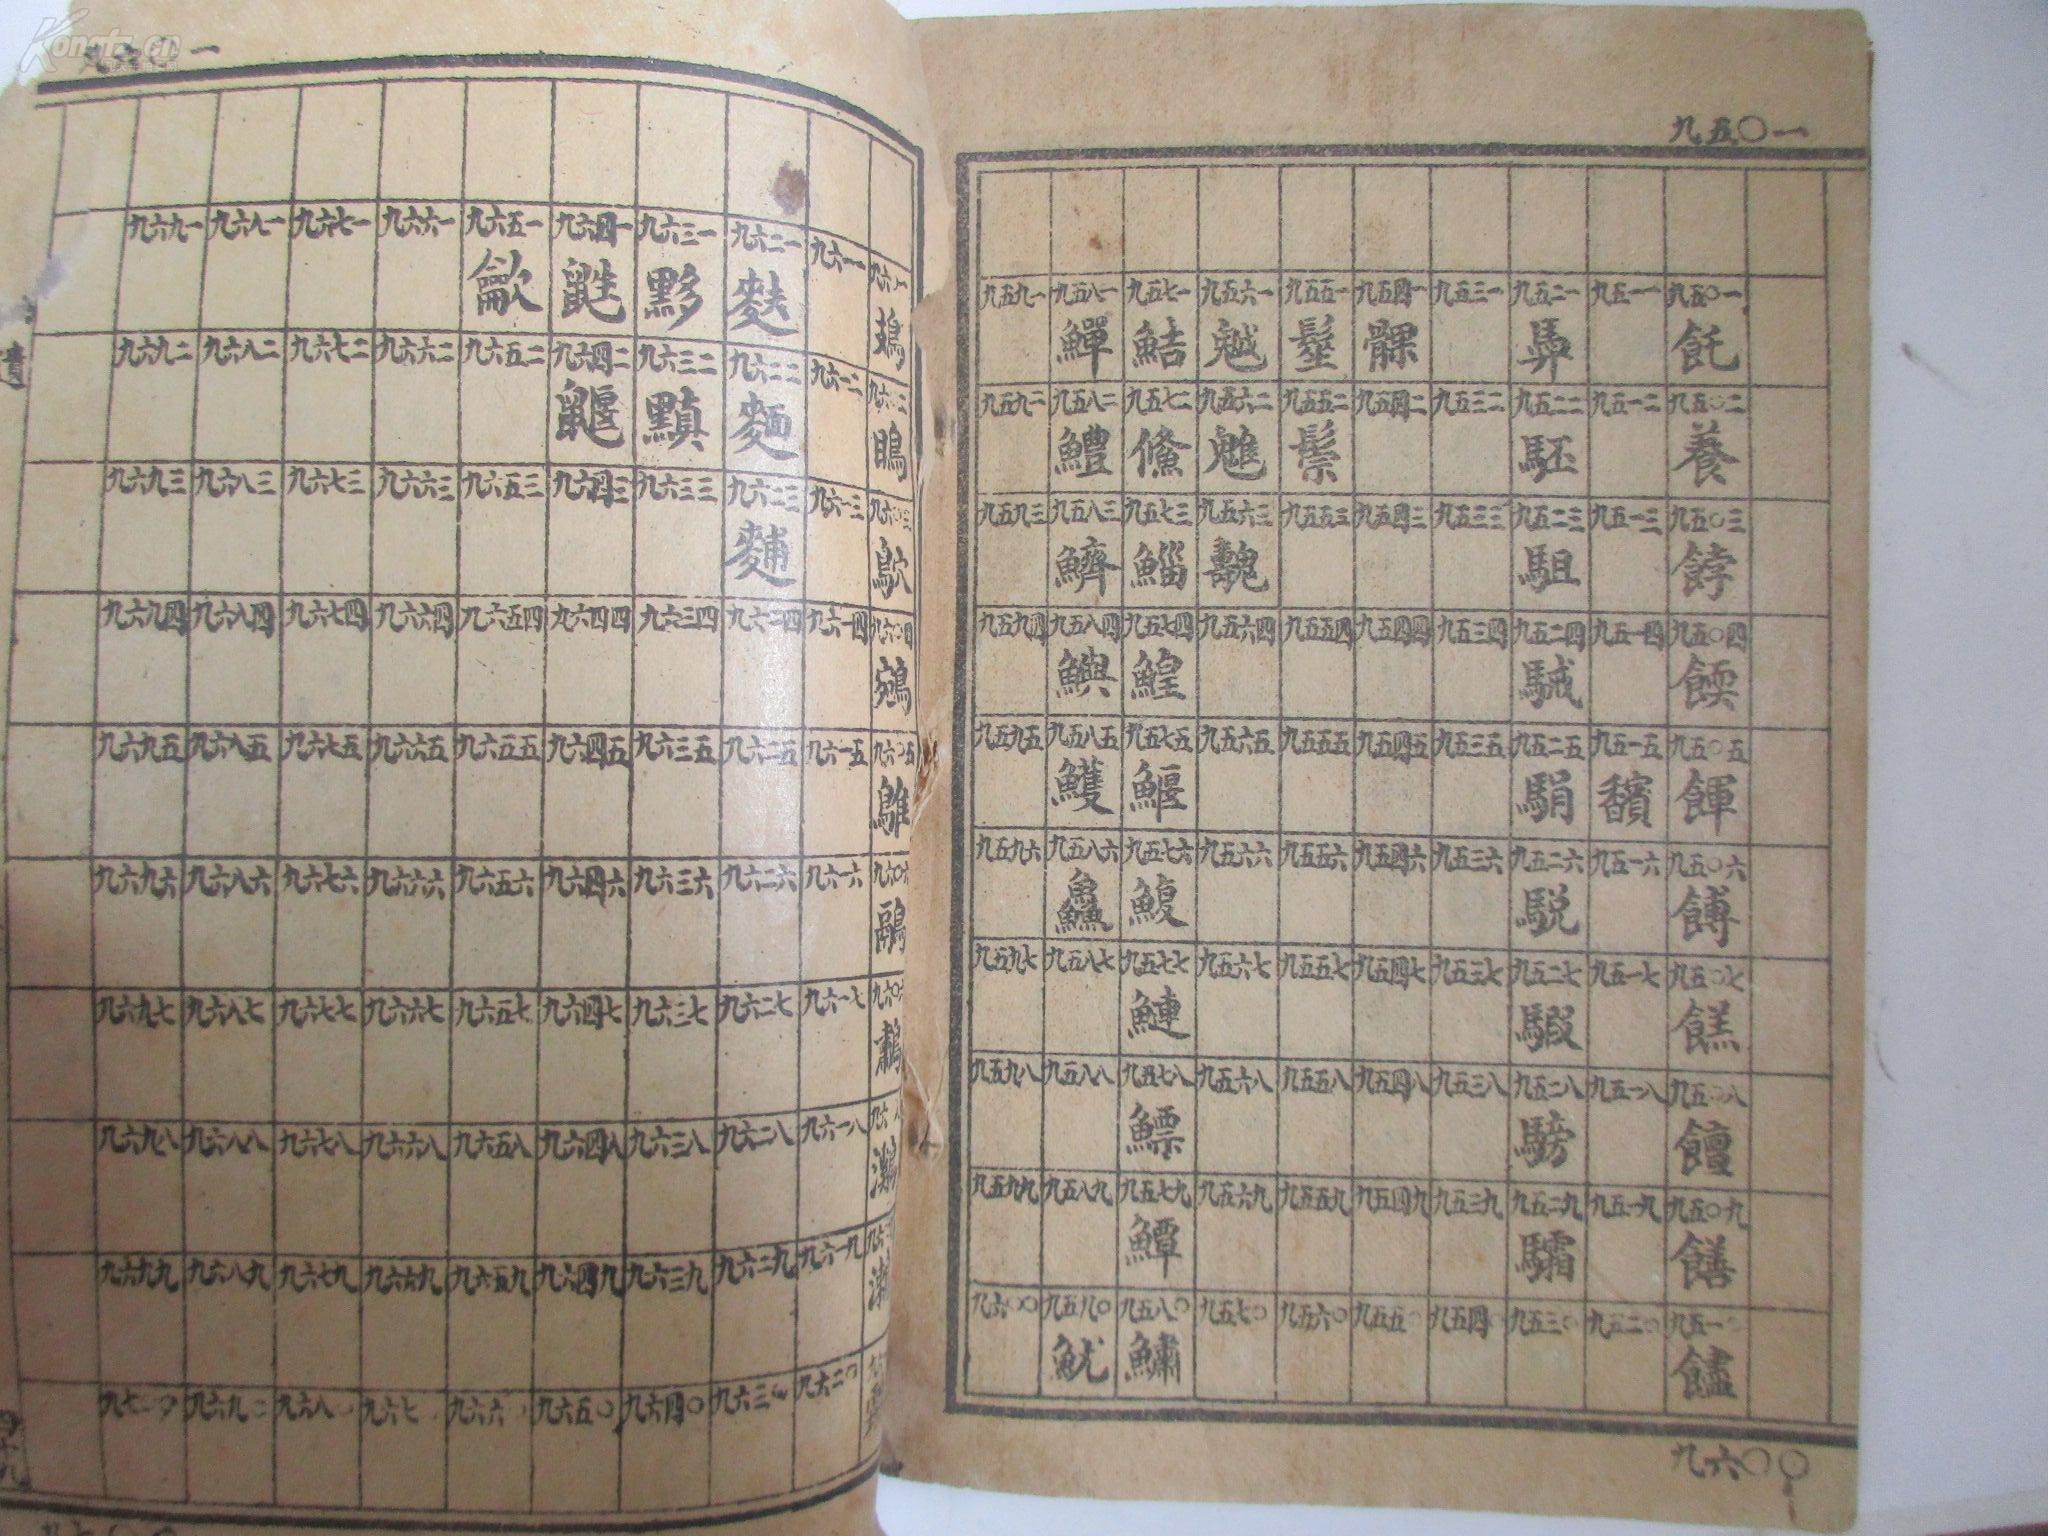 九五〇一
九五〇一 飥 九五〇二 養 九五〇三 餑 九五〇四 餪 九五〇五 餫 九五〇六 餺 九五〇七 餻 九五〇八 饘 九五〇九 饍 九五一〇
九五一一 九五一二 九五一三 九五一四 九五一五 馪 九五一六 九五一七 九五一八 九五一九 九五二〇
九五二一 九五二二 駓 九五二三 駔 九五二四 駥 九五二五 駽 九五二六 駾 九五二七 騢 九五二八 騯 九五二九 驦 九五三〇
九五三一 九五三二 九五三三 九五三四 九五三五 九五三六 九五三七 九五三八 九五三九 九五四〇
九五四一 髁 九五四二 九五四三 九五四四 九五四五 九五四六 九五四七 九五四八 九五四九 九五五〇
九五五一 九五五二 鬃 九五五三 九五五四 九五五五 九五五六 九五五七 九五五八 九五五九 九五六〇
九五六一 魊 九五六二 魋 九五六三 魗 九五六四 九五六五 九五六六 九五六七 九五六八 九五六九 九五七〇
九五七一 鮚 九五七二 鯈 九五七三 鯔 九五七四 鰉 九五七五 鰋 九五七六 鰒 九五七七 鰱 九五七八 鰾 九五七九 鱏 九五八〇 鱐
九五八一 鱓 九五八二 鱧 九五八三 鱭 九五八四 鱮 九五八五 鱯 九五八六 鱻 九五八七 九五八八 九五八九 九五九〇 魷
九五九一 九五九二 九五九三 九五九四 九五九五 九五九六 九五九七 九五九八 九五九九 九六〇〇
九六〇〇
鴖 鴥 九六〇四 鵷 九六〇五 鵻 鷊 鷫
九六一一 九六一二 九六一三 九六一四 九六一五 九六一六 九六一七 九六一八 九六一九 九六二〇
九六二一 麩 九六二二 麵 九六二三 䴺 九六二四 九六二五 九六二六 九六二七 九六二八 九六二九 九六三〇
九六三一 黟 九六三二 黰 九六三三 九六三四 九六三五 九六三六 九六三七 九六三八 九六三九 九六四〇
九六四一 鼪 九六四二 鼴 九六四三 九六四四 九六四五 九六四六 九六四七 九六四八 九六四九 九六五〇
九六五一 龡 九六五二 九六五三 九六五四 九六五五 九六五六 九六五七 九六五八 九六五九 九六六〇
九六六一 九六六二 九六六三 九六六四 九六六五 九六六六 九六六七 九六六八 九六六九 九六七
九六七一 九六七二 九六七三 九六七四 九六七五 九六七六 九六七七 九六七八 九六七九 九六八〇
九六八一 九六八二 九六八三 九六八四 九六八五 九六八六 九六八七 九六八八 九六八九 九六九〇
九六九一 九六九二 九六九三 九六九四 九六九五 九六九六 九六九七 九六九八 九六九九 九七〇〇